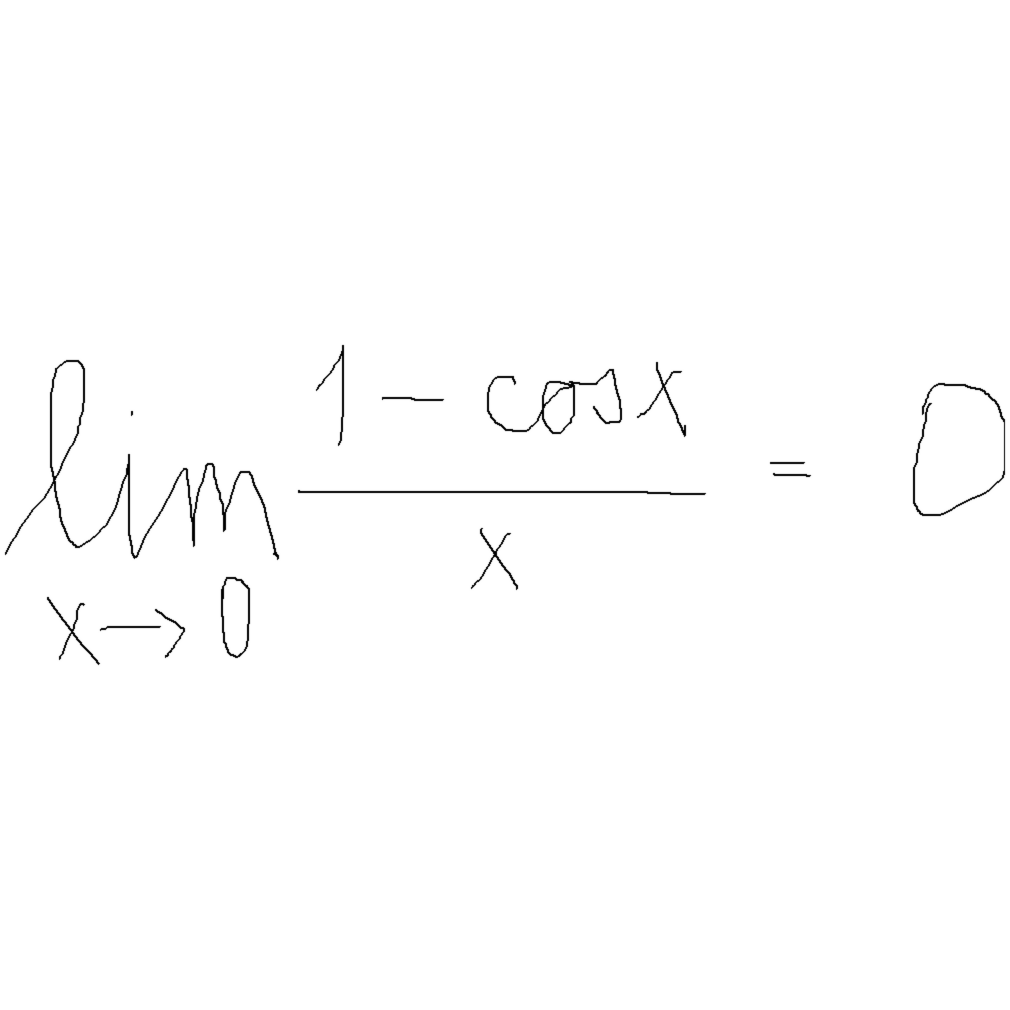 lim_{x→0} \frac{1 - cos x}{x} = 0